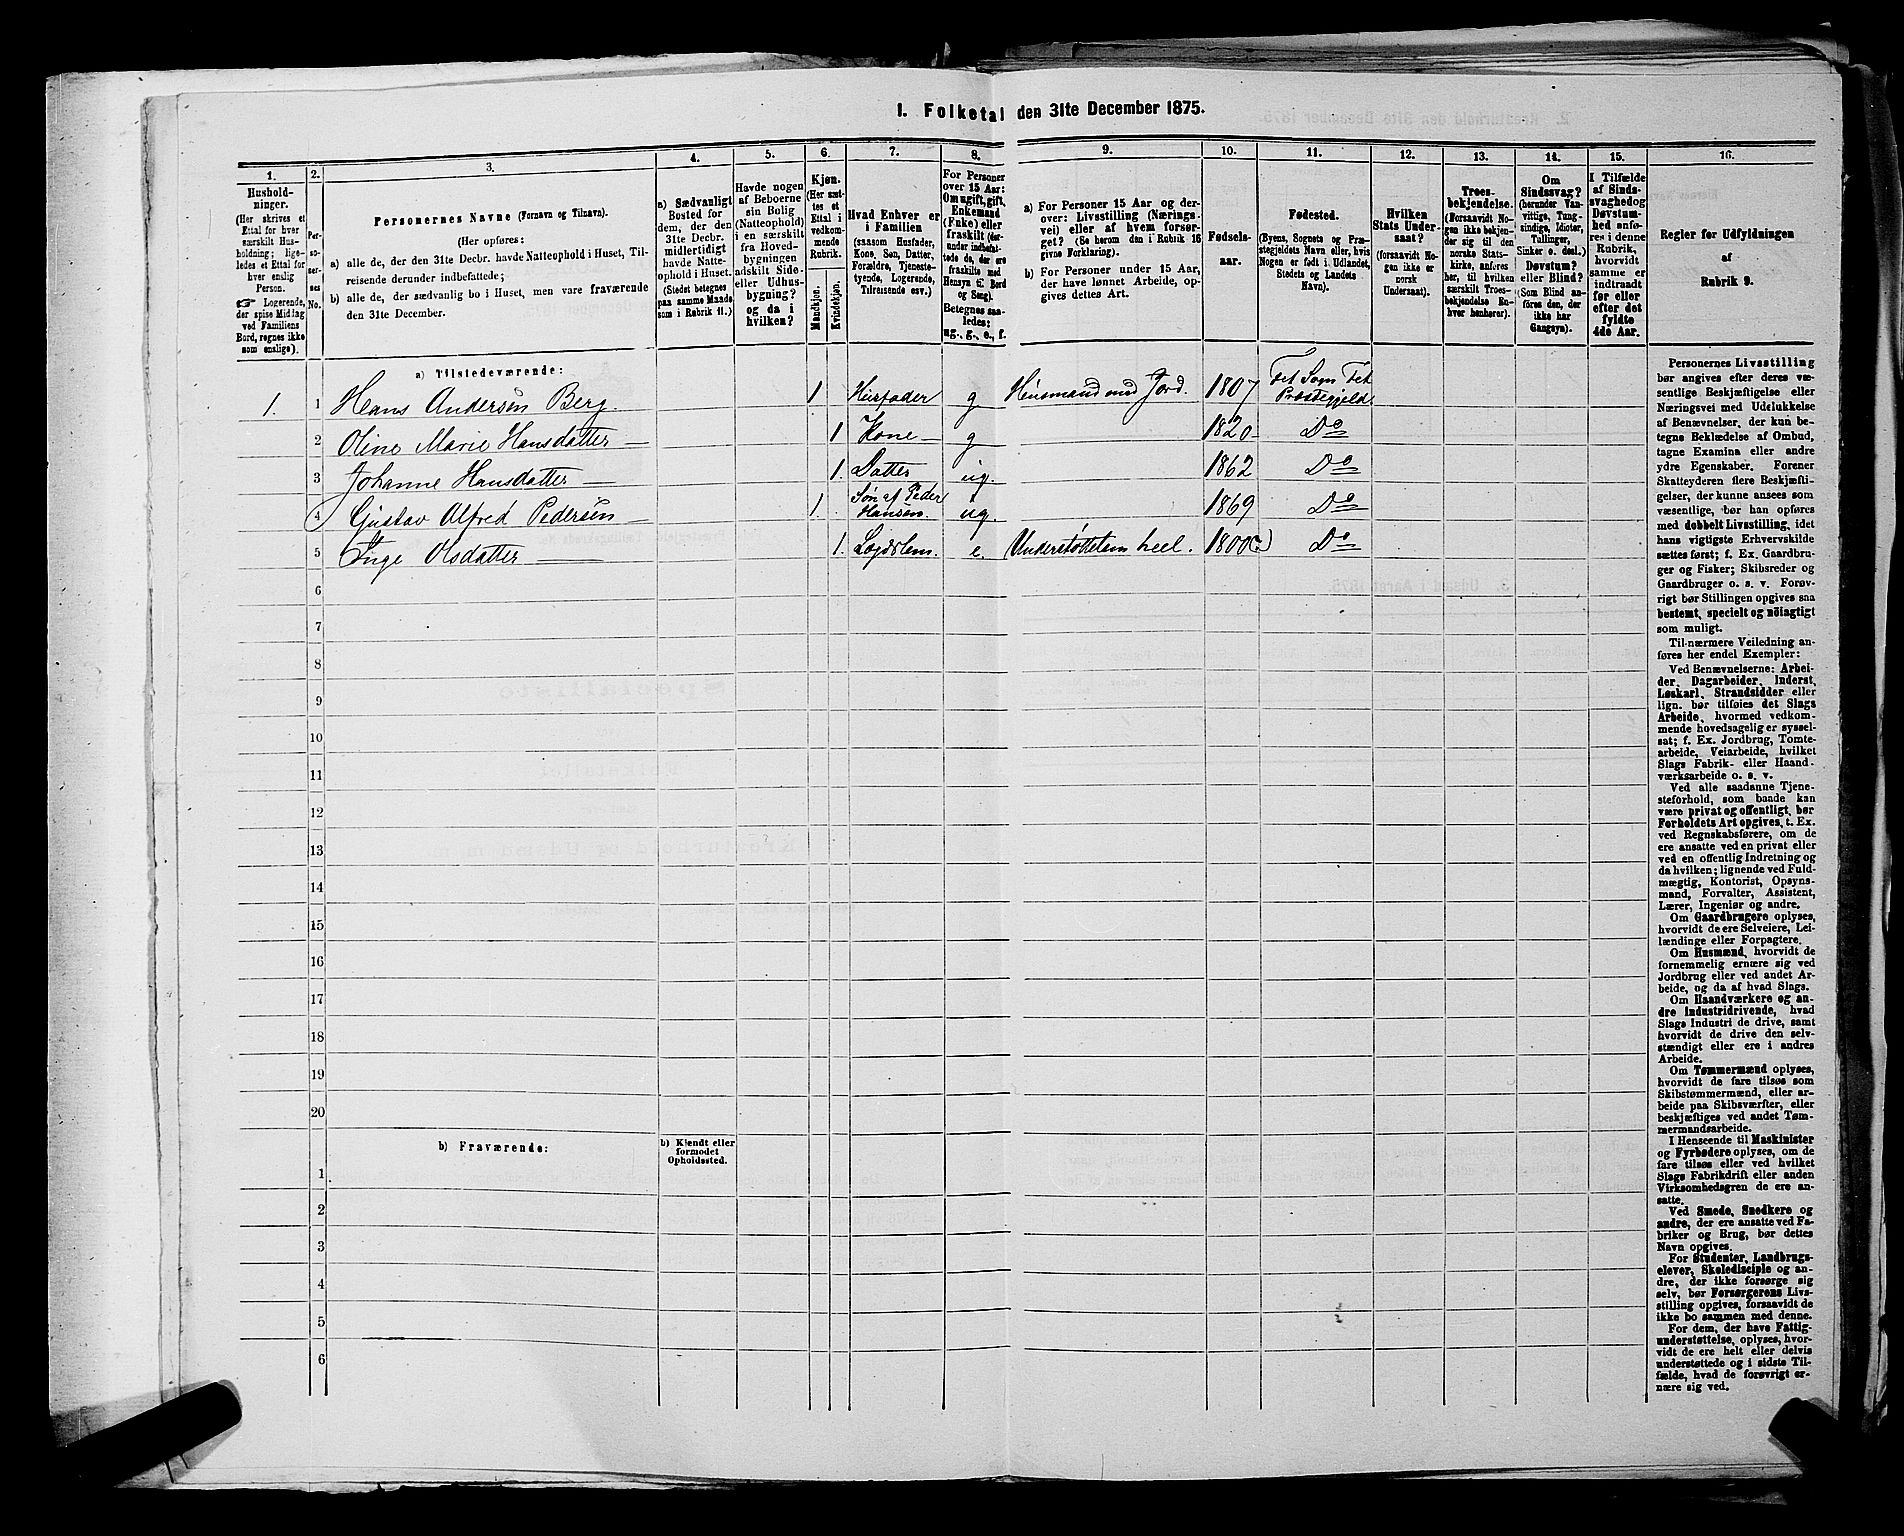 1. Folketal den 31te December 1875.
1.
2.
3.
4.
5.
6.
7.
8.
9.
10.
11.
12.
13.
14.
15.
16.
Hushold-
ninger.
(Her skrives et
Ettal for hver
særskilt Hus-
holdning; lige-
ledes et Ettal for
hver enslig
Person.
☞ Logerende,
der spise Middag
ved Familiens
Bord, regnes ikke
som enslige).
Per-
so-
ner-
nes
No.
Personernes Navne (Fornavn og Tilnavn).
(Her opføres:
a) alle de, der den 31te Decbr. havde Natteophold i Huset, Til-
reisende derunder indbefattede;
b) alle de, der sædvanlig bo i Huset, men vare fraværende
den 31te December.
a) Sædvanligt
Bosted for
dem, der den
31te Decbr.
midlertidigt
havde Natte-
ophold i Huset.
(Stedet betegnes
paa samme Maade
som i Rubrik 11.)
Havde nogen
af Beboerne
sin Bolig
(Natteophold)
i en særskilt
fra Hoved-
bygningen
adskilt Side-
eller Udhus-
bygning?
og da i
hvilken?
Kjøn.
(Her sæt-
tes et
Ettal i
vedkom-
mende
Rubrik.
Mandkjøn.
Kvindekjøn.
Hvad Enhver er
i Familien
(saasom Husfader,
Kone, Søn, Datter,
Forældre, Tjeneste-
tyende, Logerende,
Tilreisende osv.)
For Personer
over 15 Aar:
Om ugift, gift,
Enkemand
(Enke) eller
fraskilt (der-
under indbefat-
tede de, der ere
fraskilte med
Hensyn til Bord
og Seng).
Betegnes saa-
ledes:
ug., g., e., f.
a) For Personer 15 Aar og der-
over: Livsstilling (Nærings-
vei) eller af hvem forsør-
get? (Se herom den i Rubrik 16
givne Forklaring).
b) For Personer under 15 Aar,
der have lønnet Arbeide, op-
gives dettes Art.
Fødsels-
aar.
Fødested.
(Byens, Sognets og Præ-
stegjeldets Navn, eller, hvis
Nogen er født i Udlandet,
Stedets og Landets
Navn).
Hvilken
Stats Under-
saat?
(forsaavidt No-
gen ikke er
norsk
Undersaat).
Troes-
bekjendelse.
(Forsaavidt No-
gen ikke bekjen-
der sig til den
norske Stats-
kirke, anføres
her, til hvilken
særskilt Troes-
bekjendelse En-
hver henhører).
Om
Sindssvag?
(herunder Van-
vittige, Tung-
sindige, Idioter,
Tullinger,
Sinker o. desl.)
Døvstum?
eller Blind?
(Som Blind an-
føres den, der
ikke har
Gangsyn).
I Tilfælde
af Sinds-
svaghed og
Døvstum-
hed anfø-
res i denne
Rubrik,
hvorvidt
samme er
indtraadt
før eller
efter det
fyldte
4de Aar.
Regler for Udfyldningen
af
Rubrik 9.
a) Tilstedeværende:
1. 1 Hans Andersen Berg. 1 Husfader g Husmand med Jord. 1807 Fet Sogn Fet
Præstegjeld
2 Oline Marie Hansdatter — 1 Kone — g 1820 Do
3 Johanne Hansdatter — 1. Datter ug. 1862 Do
4 Gustav Alfred Pedersen — 1 Søn af Peder
Hansen. ug. 1869 Do
5 Inge Olsdatter — 1. Lægdslem. e. Understøttelse heel. 1800(?) Do
6
7
8
9
10
11
12
13
14
15
16
17
18
19
20
b) Fraværende:
b) Kjendt eller
formodet
Opholdssted.
1
2
3
4
5
6
Personernes Livsstilling
bør angives efter deres væ-
sentlige Beskjæftigelse eller
Næringsvei med Udelukkelse
af Benævnelser, der kun be-
tegne Beklædelse af Ombud,
tagne Examina eller andre
ydre Egenskaber. Forener
Skatteyderen flere Beskjæfti-
gelser, der kunne ansees som
væsentlige, bør han opføres
med dobbelt Livsstilling, idet
hans vigtigste Erhvervskilde
sættes først; f. Ex. Gaardbru-
ger og Fisker; Skibsreder og
Gaardbruger o. s. v. Forøv-
rigt bør Stillingen opgives saa
bestemt, specielt og nöiagtigt
som muligt.
Til nærmere Veiledning an-
føres her endel Exempler:
Ved Benævnelserne: Arbei-
der, Dagarbeider, Inderst,
Løskarl, Strandsidder eller
lign. bør tilføies det Slags
Arbeide, hvormed vedkom-
mende hovedsagelig er syssel-
sat; f. Ex. Jordbrug, Tomte-
arbeide, Veiarbeide, hvilket
Slags Fabrik- eller Haand-
værksarbeide o. s. v.
Ved alle saadanne Tjene-
steforhold, som baade kan
være privat og offentligt, bør
Forholdets Art opgives, t. Ex.
ved Regnskabsførere, om de
ere ansatte ved en privat eller
ved en offentlig Indretning og
da hvilken; lignende ved Fuld-
mægtig, Kontorist, Opsyns-
mand, Forvalter, Assistent,
Lærer, Ingeniør og andre.
Om Gaardbrugere oplyses,
hvorvidt de ere Selveiere, Lei-
lændinge eller Forpagtere.
Om Husmænd, hvorvidt de
fornemmelig ernære sig ved
Jordbrug eller ved andet Ar-
beide, og da af hvad Slags.
Om Haandværkere og an-
dre Industridrivende, hvad
Slags Industri de drive, samt
hvorvidt de drive den selv-
stændigt eller ere i andres
Arbeide.
Om Tømmermænd oplyses,
hvorvidt de fare tilsøs som
Skibstømmermænd, eller ar-
beide paa Skibsværfter, eller
beskjæftiges ved andet Tøm-
mermandsarbeide.
I Henseende til Maskinister
og Fyrbødere oplyses, om de
fare tilsøs eller ved hvilket
Slags Fabrikdrift eller anden
Virksomhedsgren de ere an-
satte.
Ved Smede, Snedkere og
andre, der ere ansatte ved Fa-
briker og Brug, bør dettes
Navn opgives.
For Studenter, Landbrugs-
elever, Skoledisciple og an-
dre, der ikke forsørge sig
selv, bør Forsørgerens Livs-
stilling opgives, forsaavidt de
ikke bo sammen med denne.
For dem, der have Fattig-
understøttelse, oplyses, hvor-
vidt de ere helt eller delvis
understøttede og i sidste Til-
fælde, hvad de forøvrigt er-
nære sig ved.